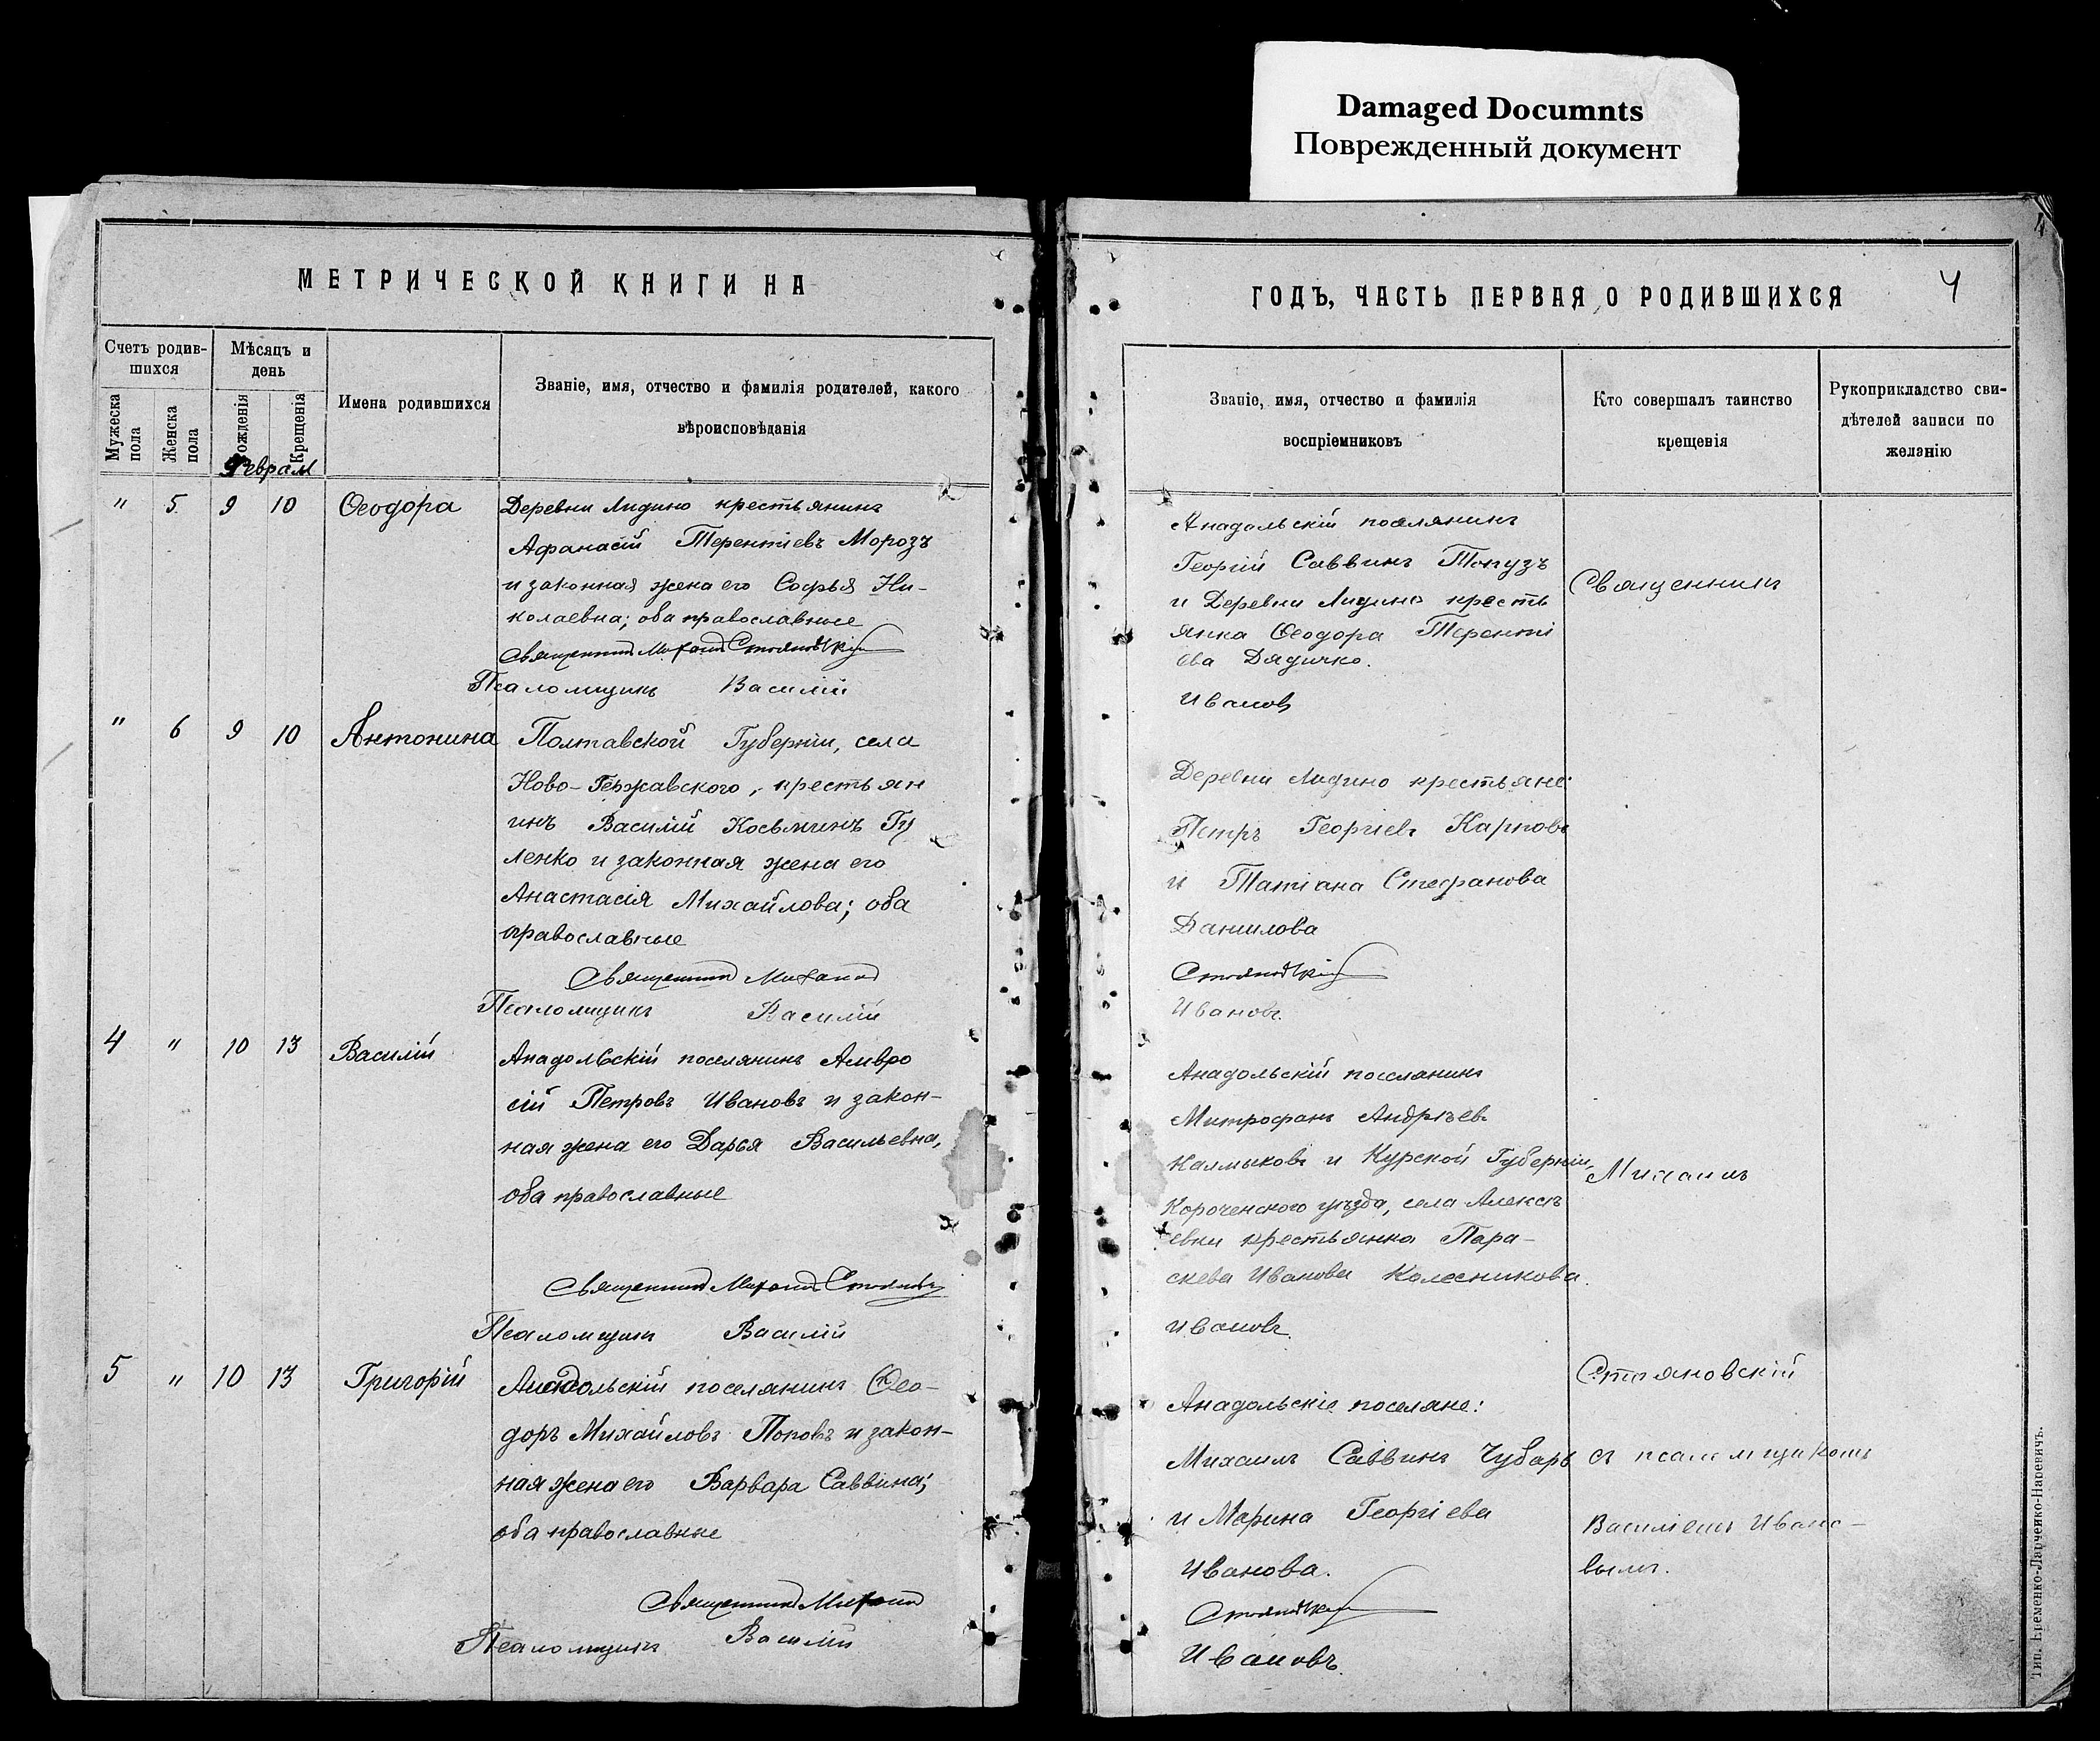 Damaged Documnts
Поврежденный документ
МЕТРИЧЕСКОЙ КНИГИ НА
Счетъ родив-
шихся
Мѣсяцъ и
день
Имена родившихся
Званіе, имя, отчество и фамилія родителей, какого
вѣроисповѣданія
Мужеска
пола
Женска
пола
Рожденія
Крещенія
Феврал
" 5 9 10 Ѳеодора
Деревни Лидино крестьянинъ
Афанасій Терентіевъ Морозъ
и законная жена его Софья Ни-
колаевна; оба православные
Священникъ Михаилъ Стояновскій
Псаломщикъ Василій
" 6 9 10 Антонина
Полтавской Губерніи, села
Ново- крестьян
инъ Василій Косьминъ Гу
ленко и законная жена его
Анастасія Михайлова; оба
православные
Священникъ Михаилъ
Псаломщикъ Василій
4 " 10 13 Василій
Анадольскій поселянинъ Амвро
сій Петровъ Ивановъ и закон-
ная жена его Дарья Васильевна,
оба православные
Священникъ Михаилъ Стояновскій
Псаломщикъ Василій
5 " 10 13 Григорій
Анадольскій поселянинъ Ѳео-
доръ Михайловъ Поповъ и закон-
ная жена его Варвара Саввина;
оба православные
Священникъ Михаилъ
Псаломщикъ Василій
4
ГОДЪ, ЧАСТЬ ПЕРВАЯ О РОДИВШИХСЯ
4
Званіе, имя, отчество и фамилія
воспріемниковъ
Кто совершалъ таинство
крещенія
Рукоприкладство сви-
дѣтелей записи по
желанію
Анадольскій поселянинъ
Георгій Саввинъ Топузъ
и Деревни Лидино кресть
янка Ѳеодора Терентi
ева Дядичко.
Ивановъ
Деревни Лидино крестьяне:
Петръ Георгіевъ Карповъ
и Татіана Стефанова
Данилова
Стояновскій
Ивановъ.
Анадольскій поселянинъ
Митрофанъ Андрѣевъ
Калмыковъ и Курской Губерніи,
Короченского уѣзда, села Алексѣ
евки крестьянка Пара-
скева Иванова Колесникова.
Ивановъ.
Анадольскіе поселяне:
Михаилъ Саввинъ Чубарь
и Марина Георгіева
Иванова.
Стояновскій
Ивановъ.
Священникъ
Михаилъ
Стояновскій
съ псаломщикомъ
Василіемъ Ивано-
вымъ.
Тип. Еременко-Ларченко-Наревичъ.